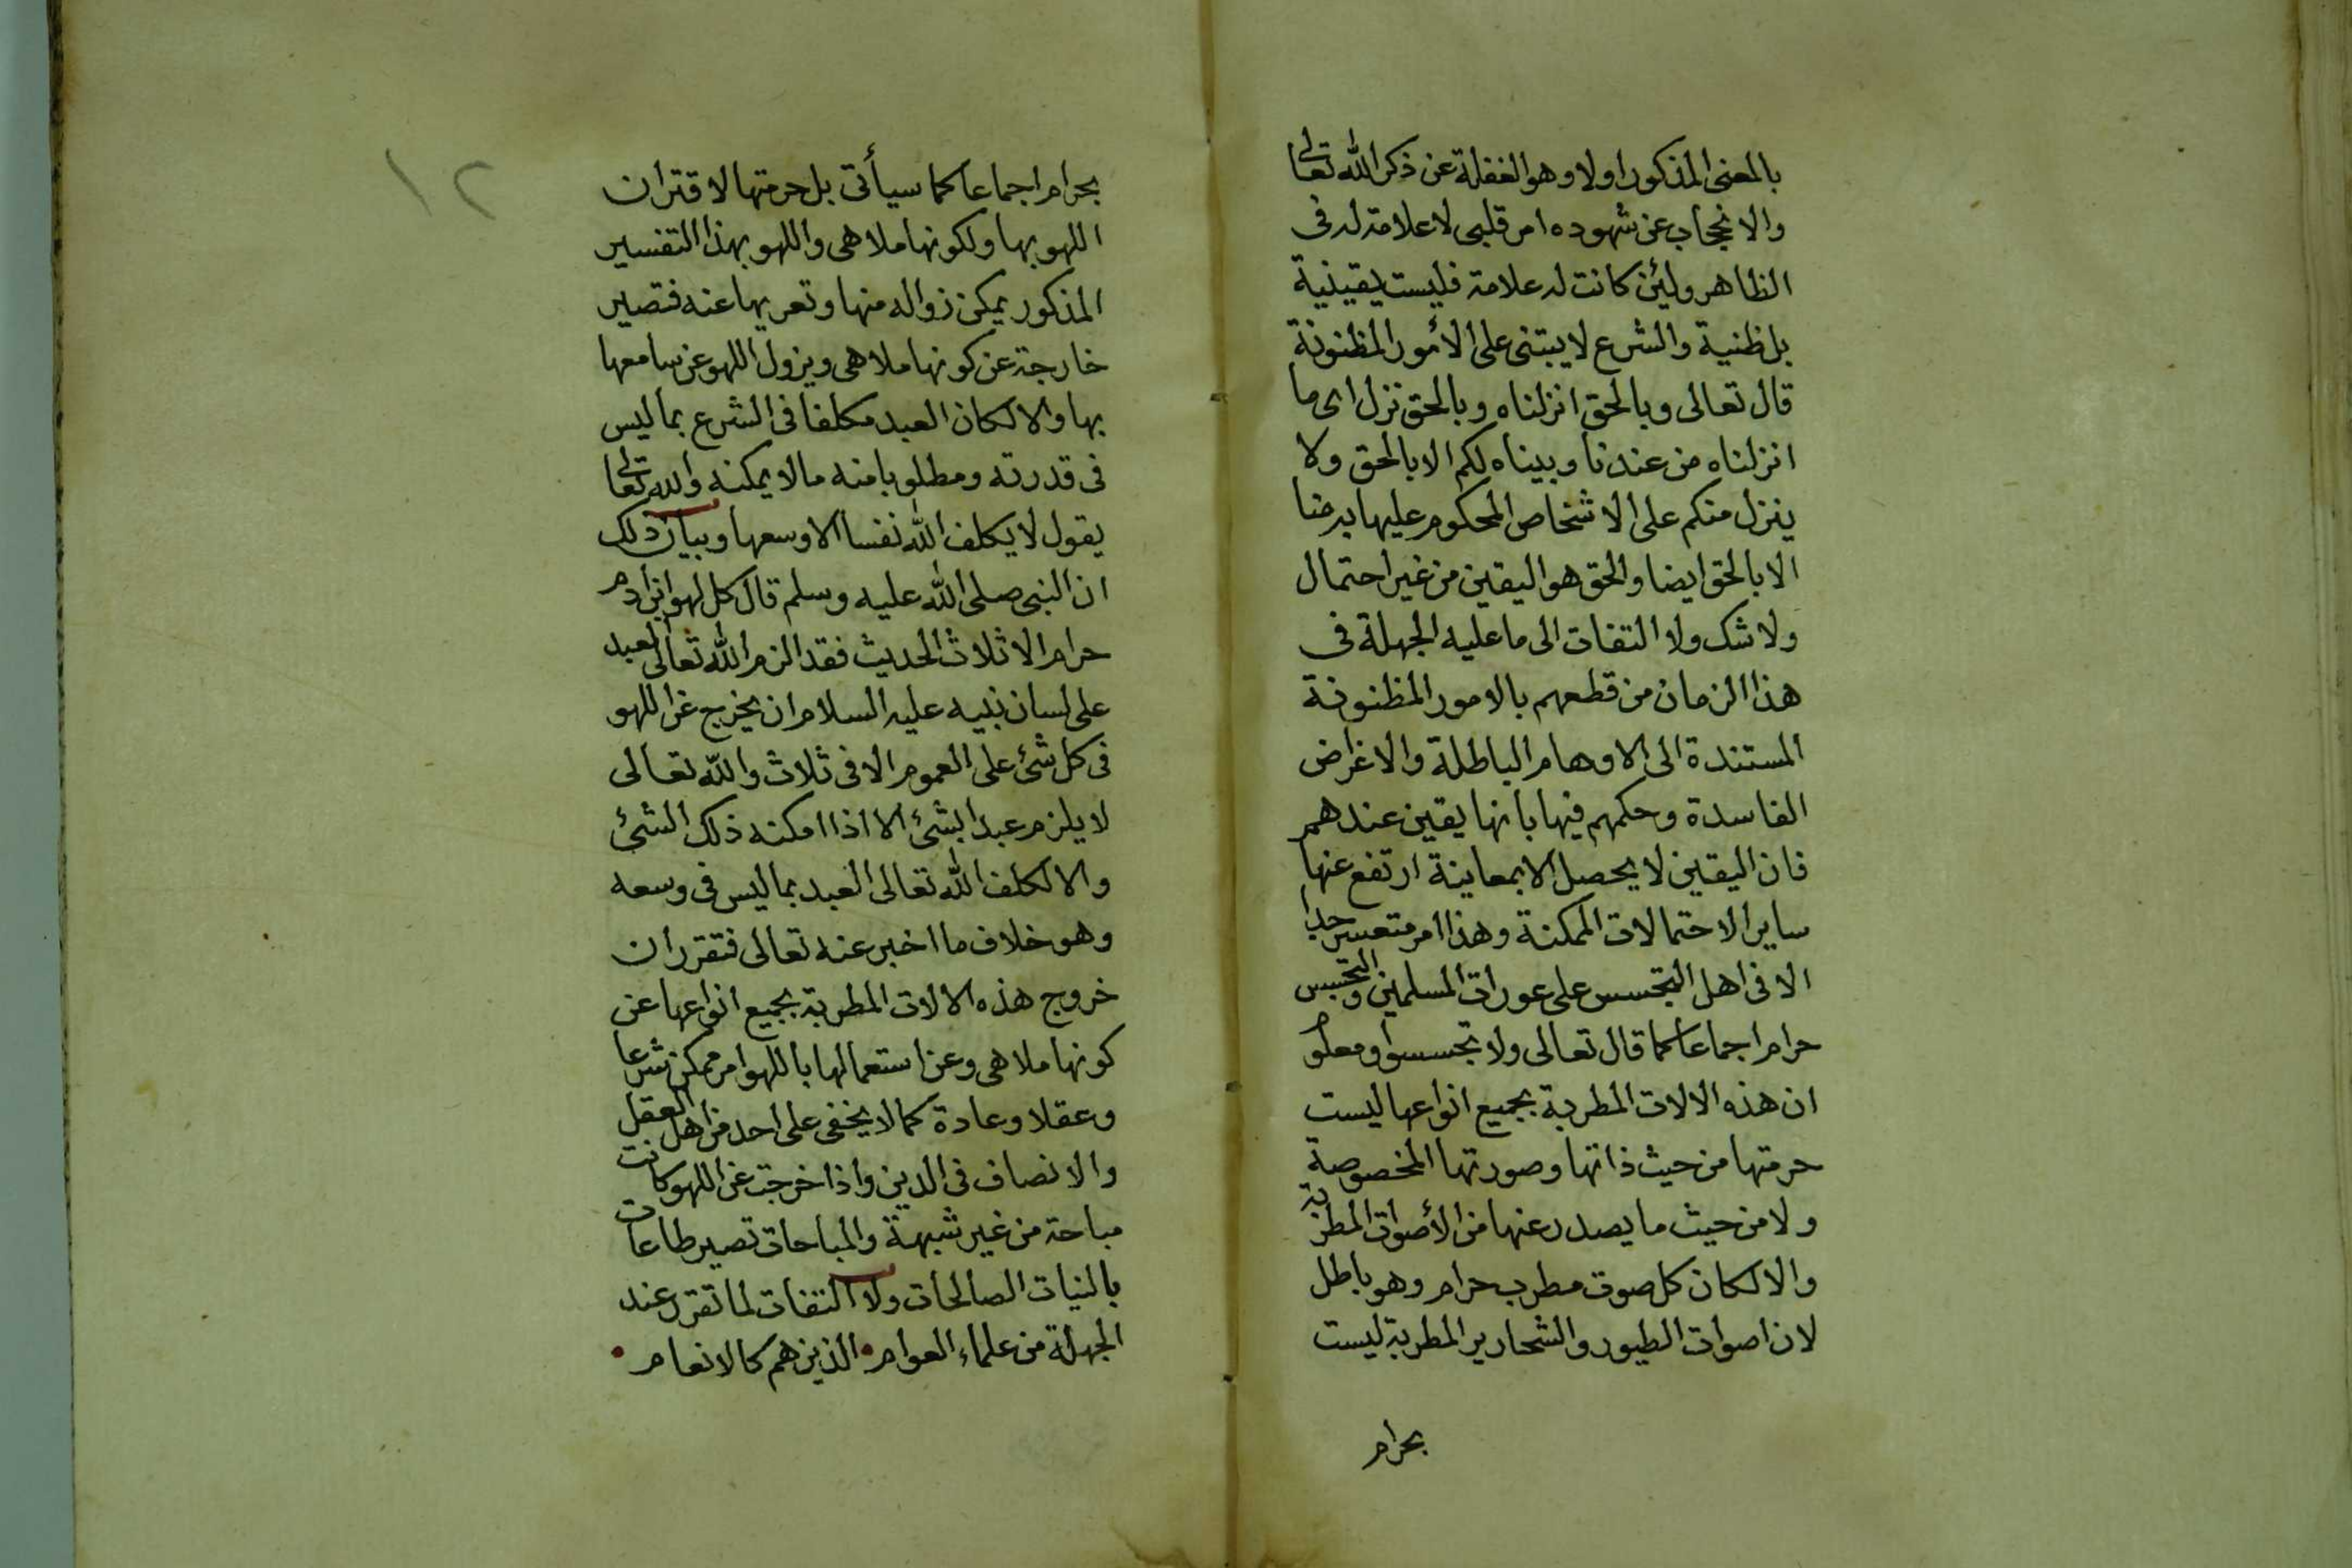 بالمعنى المذكور اولا وهو الغفلة عن ذكر الله تعالى
والانحجاب عن شهوده امر قلبى لا علامة له فى
الظاهر ولئن كانت له علامة فليست يقينية
بل ظنية والشرع لا يبتنى على الأمور المظنونة
قال تعالى وبالحق انزلناه وبالحق نزل اى ما
انزلناه من عندنا وبيناه لكم الا بالحق ولا
ينزل منكم على الاشخاص المحكوم عليها برضا
الا بالحق ايضا والحق هو اليقين من غير احتمال
ولا شك ولا التفات الى ما عليه الجهلة فى
هذا الزمان من قطعهم بالامور المظنونة
المستندة الى الاوهام الباطلة والاغراض
الفاسدة وحكمهم فيها بانها يقين عندهم
فان اليقين لا يحصل الا بمعاينة ارتفع عنها
ساير الاحتمالات الممكنة وهذا امر متعسر جدا
الا فى اهل التجسس على عورات المسلمين والتجسس
حرام اجماعا كما قال تعالى ولا تجسسوا ومعلوم
ان هذه الالات المطربة بجميع انواعها ليست
حرمتها من حيث ذاتها وصورتها المخصوصة
ولا من حيث ما يصدر عنها من الأصوات المطربة
والا لكان كل صوت مطرب حرام وهو باطل
لان اصوات الطيور والشحارير المطربة ليست
بحرام
١٢
بحرام اجماعا كما سيأتى بل حرمتها لاقتران
اللهو بها ولكونها ملاهى واللهو بهذا التفسير
المذكور يمكن زواله منها وتعريها عنه فتصير
خارجة عن كونها ملاهى ويزول اللهو عن سامعها
بها والا لكان العبد مكلفا فى الشرع بما ليس
فى قدرته ومطلوبا منه ما لا يمكنه والله تعالى
يقول لا يكلف الله نفسا الا وسعها وبيان ذلك
ان النبى صلى الله عليه وسلم قال كل لهو ابن ادم
حرام الا ثلاث الحديث فقد الزم الله تعالى العبد
على لسان نبيه عليه السلام ان يخرج عن اللهو
فى كل شئ على العموم الا فى ثلاث والله تعالى
لا يلزم عبدا بشئ الا اذا امكنه ذلك الشئ
والا لكلف الله تعالى العبد بما ليس فى وسعه
وهو خلاف ما اخبر عنه تعالى فتقرر ان
خروج هذه الالات المطربة بجميع انواعها عن
كونها ملاهى وعن استعمالها باللهو امر ممكن شرعا
وعقلا وعادة كما لا يخفى على احد من اهل العقل
والانصاف فى الدين واذا خرجت عن اللهو كانت
مباحة من غير شبهة والمباحات تصير طاعات
بالنيات الصالحات ولا التفات لما تقرر عند
الجهلة من علماء العوام • الذين هم كالانعام •